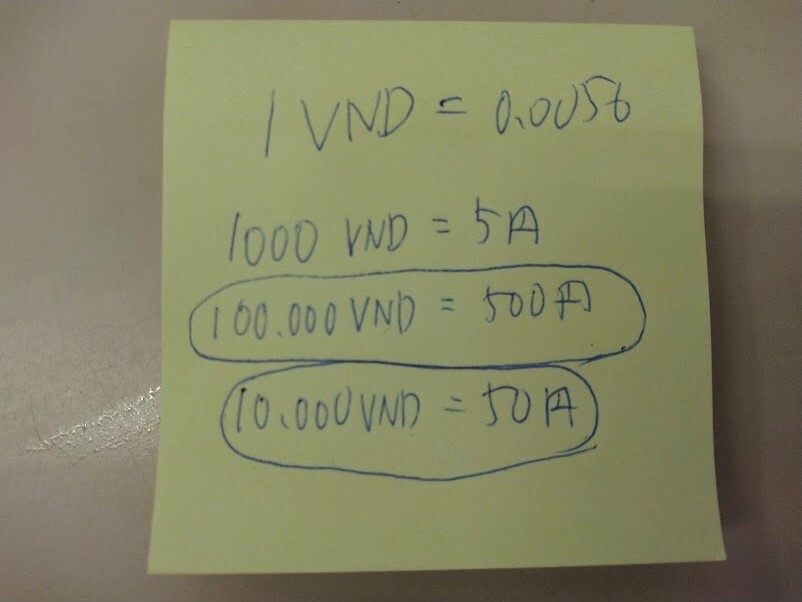 1 VND = 0.0056
1000 VND = 5円
100.000 VND = 500円
10.000 VND = 50円